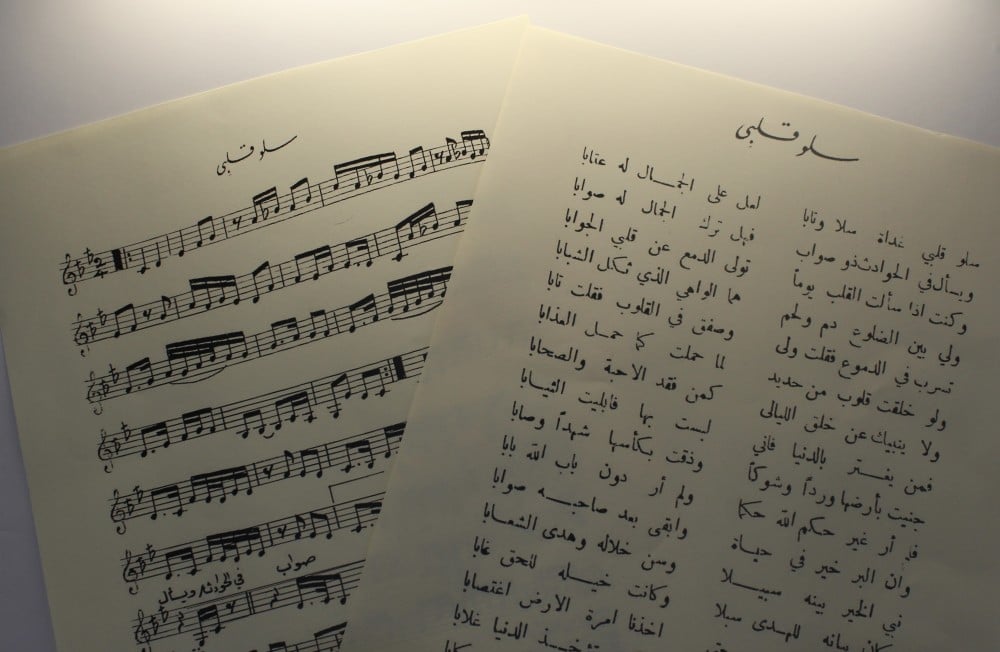 سلو قلبي
صواب
في الحوادث ويسأل
سلو قلبي
سلو قلبي غداة سلا وتابا لعل على الجمال له عتابا
ويسأل في الحوادث ذو صواب فهل ترك الجمال له صوابا
وكنت اذا سألت القلب يوماً تولى الدمع عن قلبي الجوابا
ولي بين الضلوع دم ولحم هما الواهي الذي ثكل الشبابا
تسرب في الدموع فقلت ولى وصفق في القلوب فقلت تابا
ولو خلقت قلوب من حديد لما حملت كما حمل العذابا
ولا ينبيك عن خلق الليالى كمن فقد الاحبة والصحابا
فمن يغتر بالدنيا فاني لبست بها فابليت الثيابا
جنيت بأرضها ورداً وشوكاً وذقت بكأسها شهداً وصابا
فلم أر غير حكم الله حكما ولم أر دون باب الله بابا
وان البر خير في حياة وابقى بعد صاحبه صوابا
نبي الخير بينه سبيلا وسن خلاله وهدى الشعابا
بيانه للهدى سبلا وكانت خيله للحق غابا
اخذنا امرة الارض اغتصابا
الدنيا غلابا